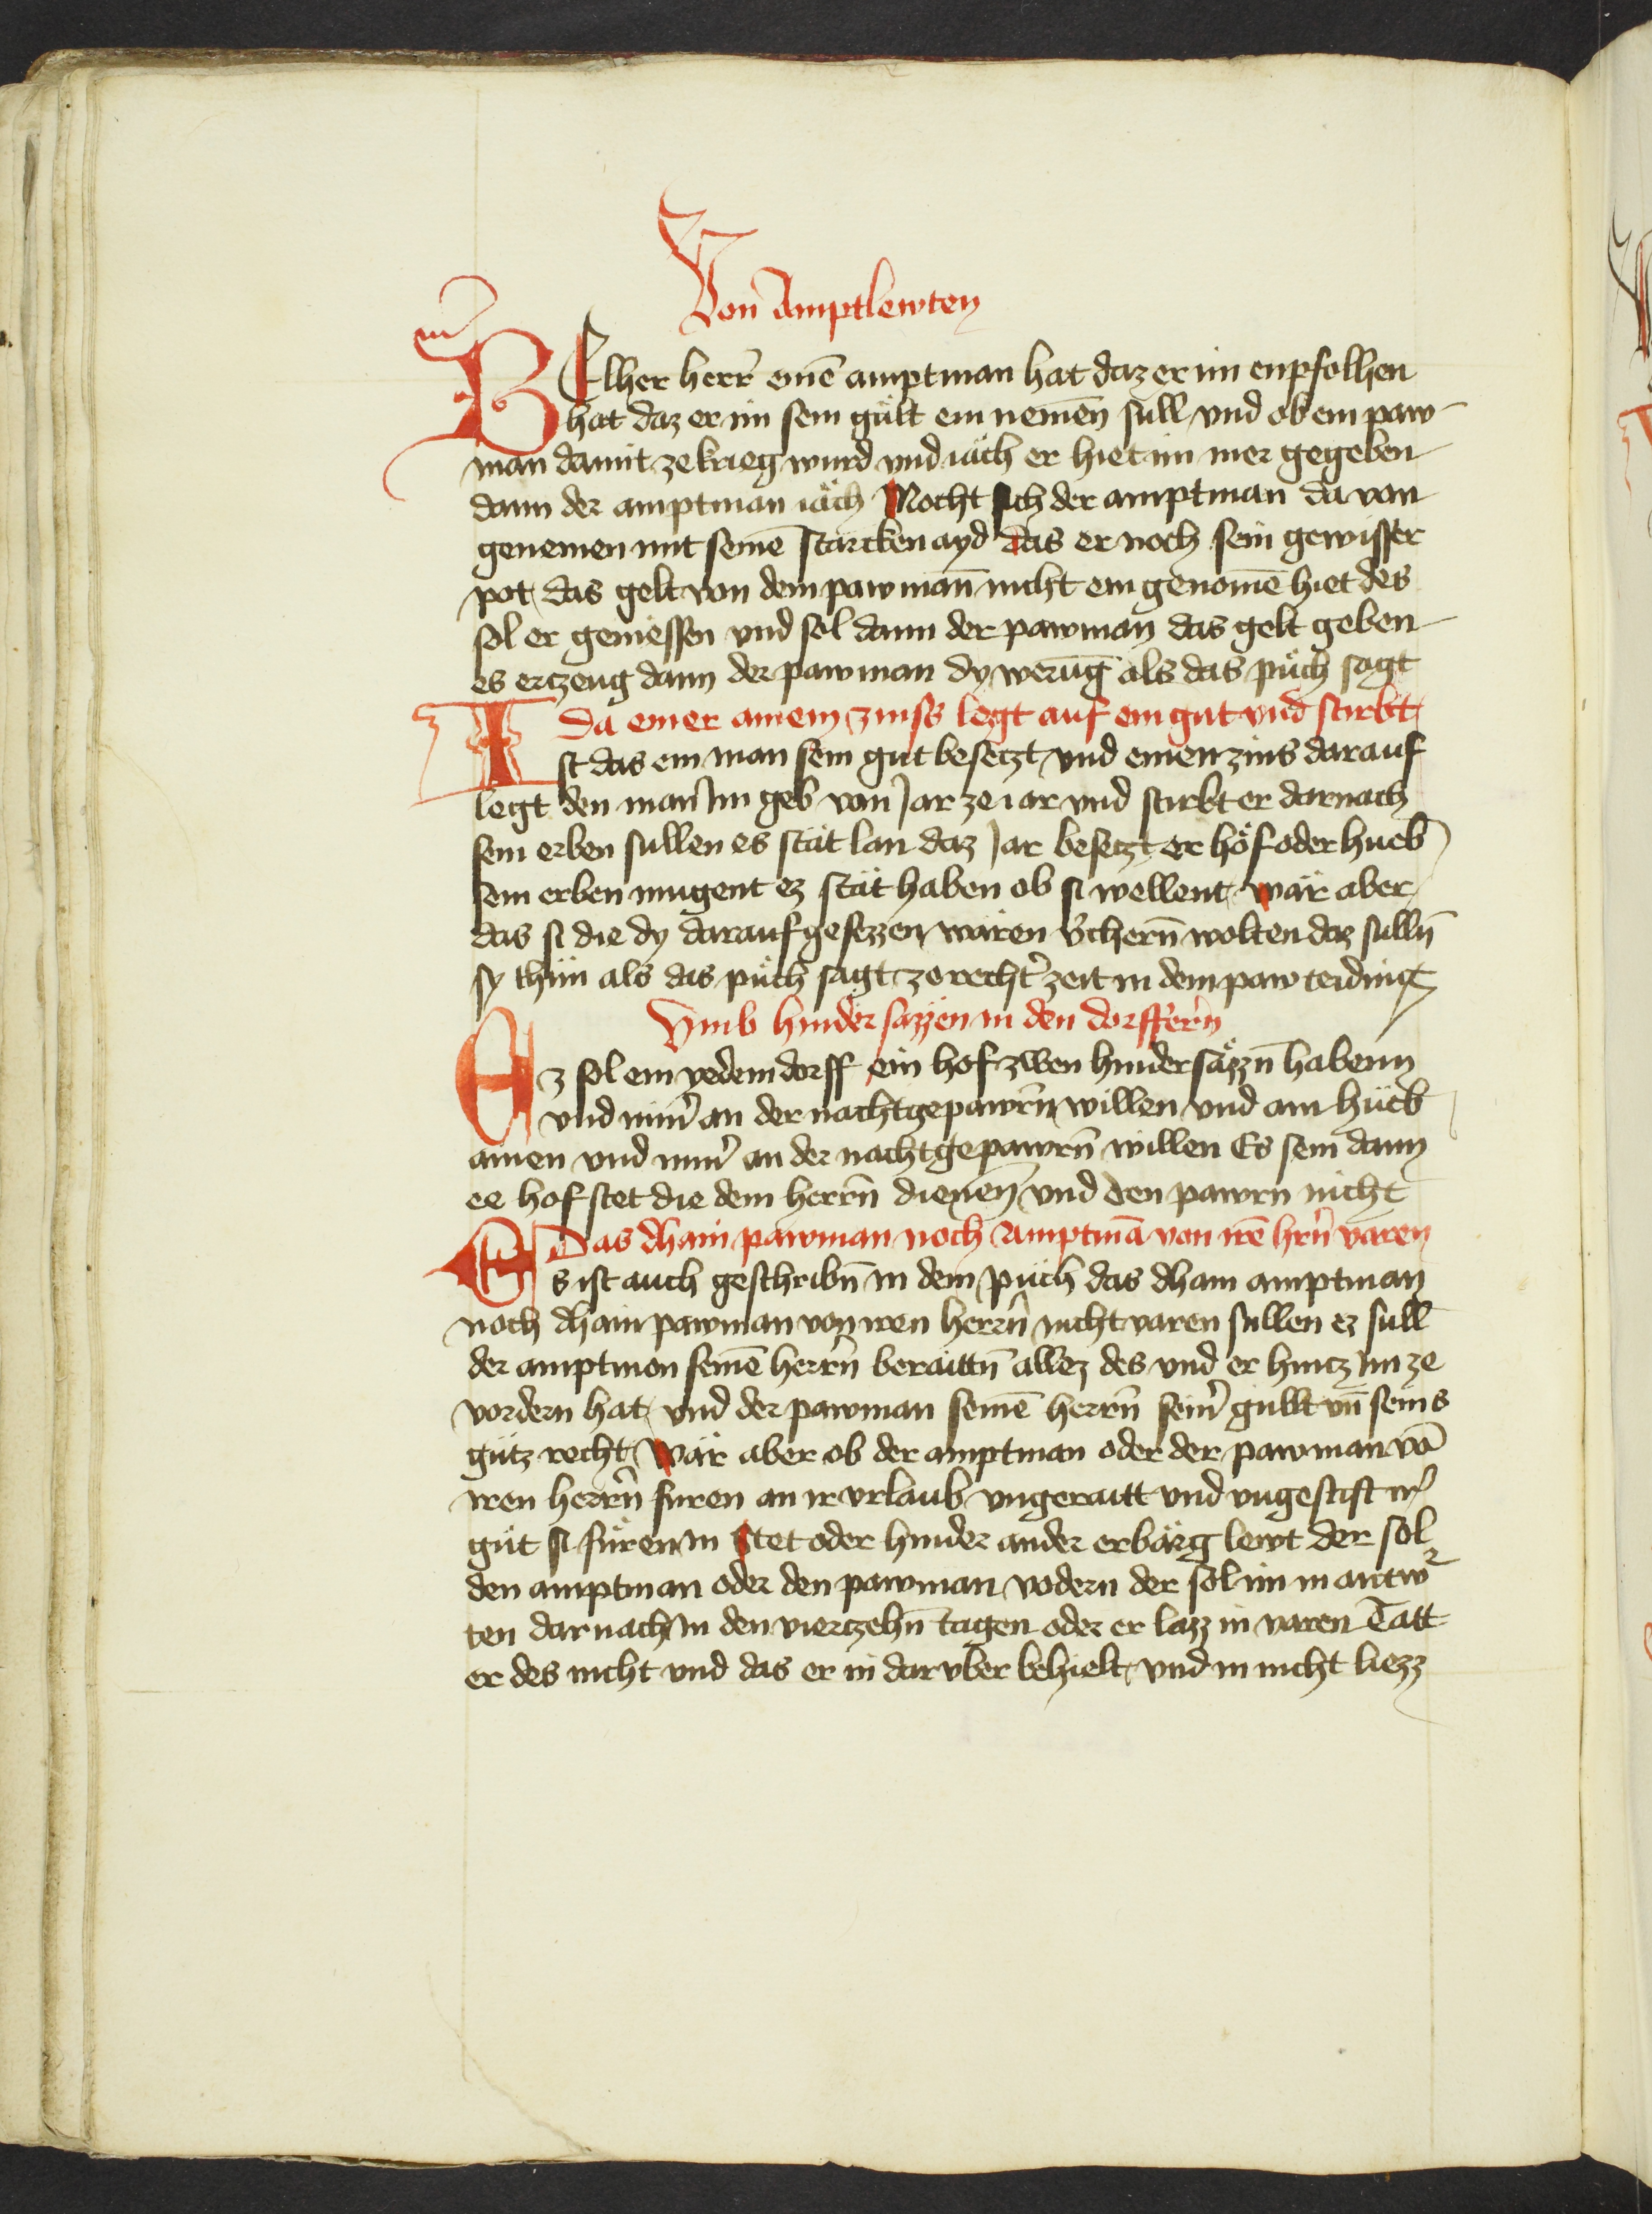 Von Amptlewten
WElher herr̄ einē amptman hat daz er im enpfolhen
hat daz er im sein gült ein nemen̄ süll vnd ob ein paw
man damit ze krieg wurd vnd iäch er hiet im mer gegeben
dann der amptman iäch Mocht sich der amptman da von
genemen mit seinē starcken ayd das er noch sein gewisser
pot das gelt von dem pawman̄ nicht ein genomē hiet des
sol er geniessen vnd sol dann der pawman das gelt geben
es ertzeug dann der pawman dy werūg als das půch sagt
Da einer ainem zinss legt auf ein gut vnd stirbt
Ist das ein man sein gut besetzt vnd einen zins darauf
legt den man im geb von Jar ze iar vnd stirbt er darnach
sein erben sullen es stät lan daz Jar besetzt er höf oder hueb
sein erben mugent ez stät haben ob si wellent wär aber
das si die dy darauf gesezzen wären v̓chern̄ wolten daz sulln̄
sy thün als das půch sagt ze recht̓ zeit in dem paw teiding
Vmb hinder sazzen in den dorffern̄
Ez sol ein yedem dorff ein hof zwen hindersäzzn̄ habenn
vnd nim̓ an der nachtgepawrn̄ willen vnd ain hüeb
ainen vnd nim̓ an der nachtgepawrn̄ willen Es sein dann
ee hofstet die dem herrn̄ dienen̄ vnd den pawrn nicht
Das dhain pawman noch Amptmā von irē hrn̄ varen
Es ist auch geschribn̄ in dem půch das dhain amptman
noch dhain pawman von iren herrn̄ nicht varen sullen ez sull
der amptmon seinē herrn̄ beraittn̄ allez des vnd er hintz im ze
vordern hat vnd der pawman seinē herrn̄ sein̓ güllt vn̄ seins
gütz recht Wär aber ob der amptman oder der pawman vō
iren herrn̄ füren an ir vrlaub vngeraitt vnd vngestift ir̓
güt si füren in stet oder hinder ander erbärg lewt der sol
den amptman oder den pawman vodern der sol im in antwr
ten darnach in den viertzehn̄ tagen oder er lazz in varen Tätt
er des nicht vnd das er in daruber behielt vnd in nicht liezz